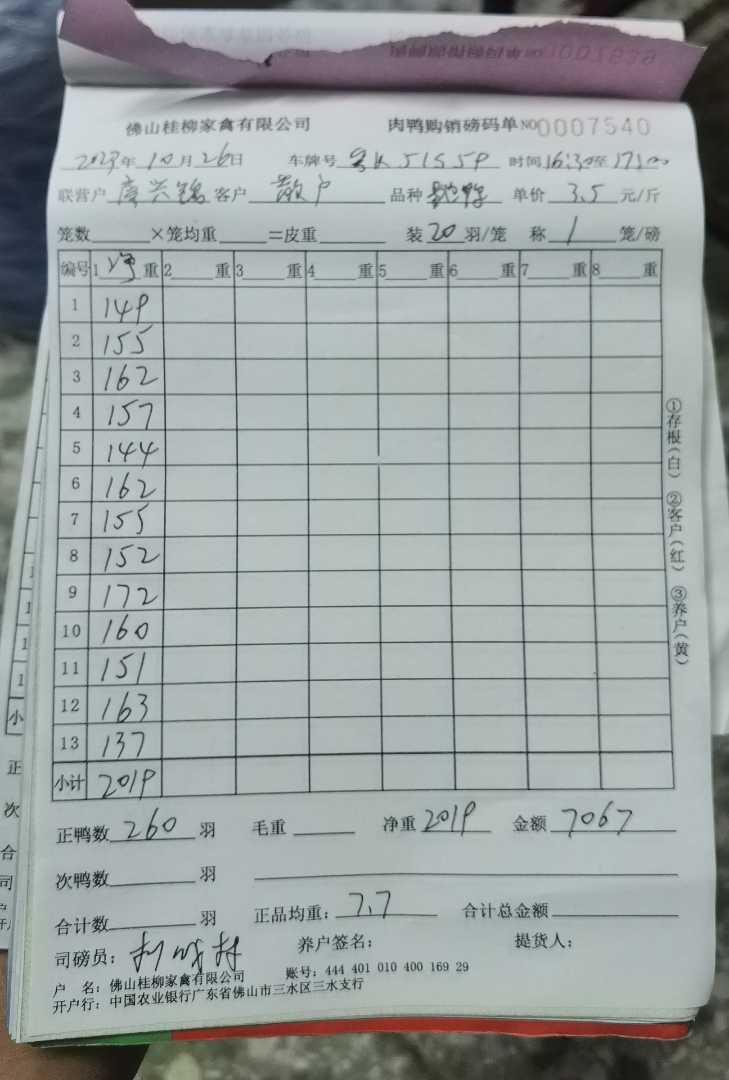 佛山桂柳家禽有限公司 肉鸭购销磅码单 NO 0007540
2023年10月26日 车牌号 51559 时间16:30至17:00
联营户 唐兴锦 客户 散户 品种 单价 3.5 元/斤
笼数 ×笼均重 =皮重 装 20 羽/笼 称 1 笼/磅
编号 1 净 重 2 重 3 重 4 重 5 重 6 重 7 重 8 重
1 149
2 155
3 162
4 157
5 144
6 162
7 155
8 152
9 172
10 160
11 151
12 163
13 137
小计 2019
正鸭数 260 羽 毛重 净重 2019 金额 7067
次鸭数 羽
合计数 羽 正品均重: 7.7 合计总金额
司磅员: 养户签名: 提货人:
户 名: 佛山桂柳家禽有限公司 账号: 444 401 010 400 169 29
开户行: 中国农业银行广东省佛山市三水区三水支行
①存根(白) ②客户(红) ③养户(黄)